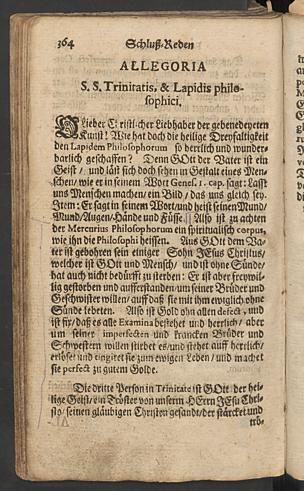 364 Schluß-Reden
ALLEGORIA
S. S. Trinitatis, & Lapidis philo-
sophici,
O Lieber Christlicher Liebhaber der gebenedeyeten
Kunst! Wie hat doch die heilige Dreyfaltigkeit
den Lapidem Philosophorum so herrlich und wunder-
barlich geschaffen? Denn GOtt der Vater ist ein
Geist / und läst sich doch sehen in Gestalt eines Men-
schen/ wie er in seinem Wort Genes. 1. cap. sagt: Lasst
uns Menschen machen/ ein Bild / das uns gleich sey.
Item: Er sagt in seinem Wort/und heist seinen Mund/
Mund/Augen/Hände und Füsse. Also ist zu achten
der Mercurius Philosophorum ein spiritualisch corpus,
wie ihn die Philosophi heissen. Aus GOtt dem Va-
ter ist gebohren sein einiger Sohn JEsus Christus/
welcher ist GOtt und Mensch/ und ist ohne Sünde/
hat auch nicht bedürfft zu sterben: Er ist aber freywil-
lig gestorben und aufferstanden/um seiner Brüder und
Geschwister willen/ auff daß sie mit ihm ewiglich ohne
Sünde lebeten. Also ist Gold ohn allen defect, und
ist fix/ daß es alle Examina bestehet und herrlich/ aber
um seiner imperfecten und krancken Brüder und
Schwestern willen stirbet es/und stehet auff herrlich/
erlöset und tingiret sie zum ewigen Leben/ und machet
sie perfect zu gutem Golde.
Die dritte Person in Trinitate ist GOtt der hei-
lige Geist/ ein Tröster von unserm HErrn JEsu Chri-
sto/ seinen gläubigen Christen gesandt/ der stärcket und
trö-